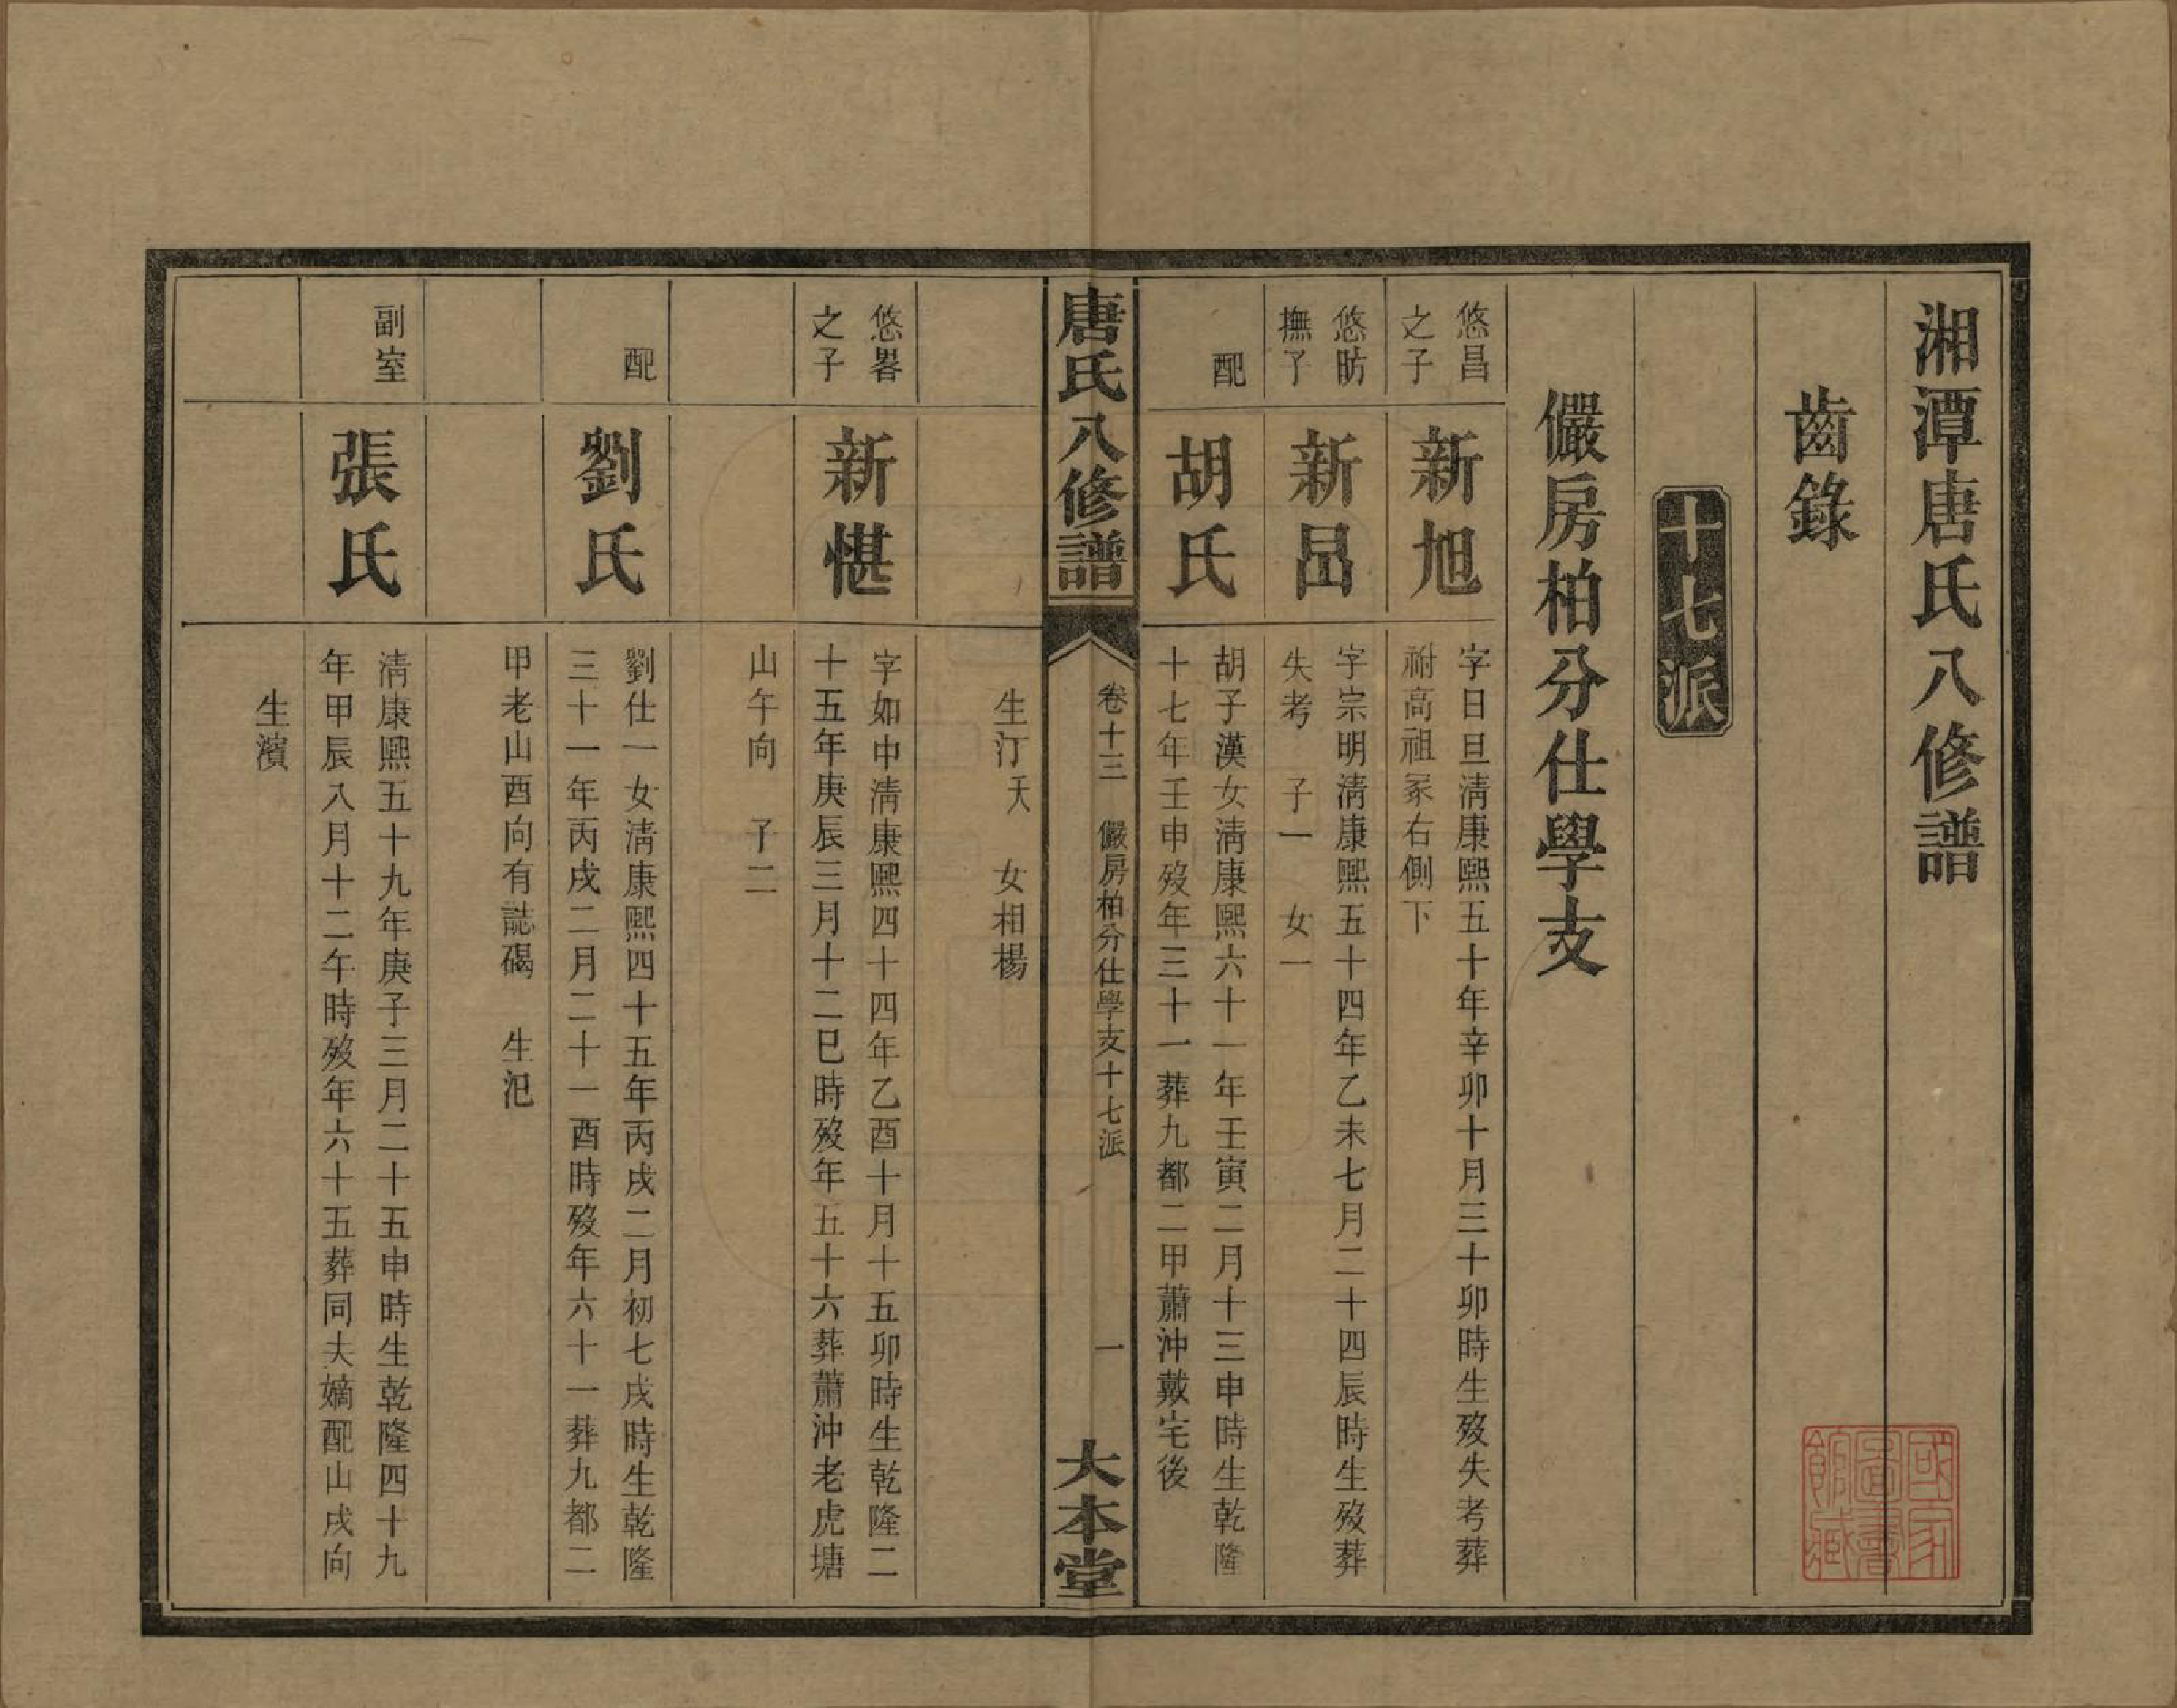 湘潭唐氏八修譜
齒錄
十七派
儼房柏分仕學支
悠昌
之子
新旭
字日旦清康熙五十年辛卯十月三十卯時生歿失考葬
祔高祖冢右側下
悠昉
撫子
新昷
字宗明清康熙五十四年乙未七月二十四辰時生歿葬
失考 子一 女一
配
胡氏
胡子漢女清康熙六十一年壬寅二月十三申時生乾隆
十七年壬申歿年三十一葬九都二甲蕭沖戴宅後
唐氏八修譜
卷十三 儼房柏分仕學支十七派
一
大本堂
生汀夭 女相楊
悠畧
之子
新愖
字如中清康熙四十四年乙酉十月十五卯時生乾隆二
十五年庚辰三月十二巳時歿年五十六葬蕭沖老虎塘
山午向 子二
配
劉氏
劉仕一女清康熙四十五年丙戌二月初七戌時生乾隆
三十一年丙戌二月二十一酉時歿年六十一葬九都二
甲老山酉向有誌碣 生氾
副室
張氏
清康熙五十九年庚子三月二十五申時生乾隆四十九
年甲辰八月十二午時歿年六十五葬同夫嫡配山戌向
生濱
國家
圖書
館藏